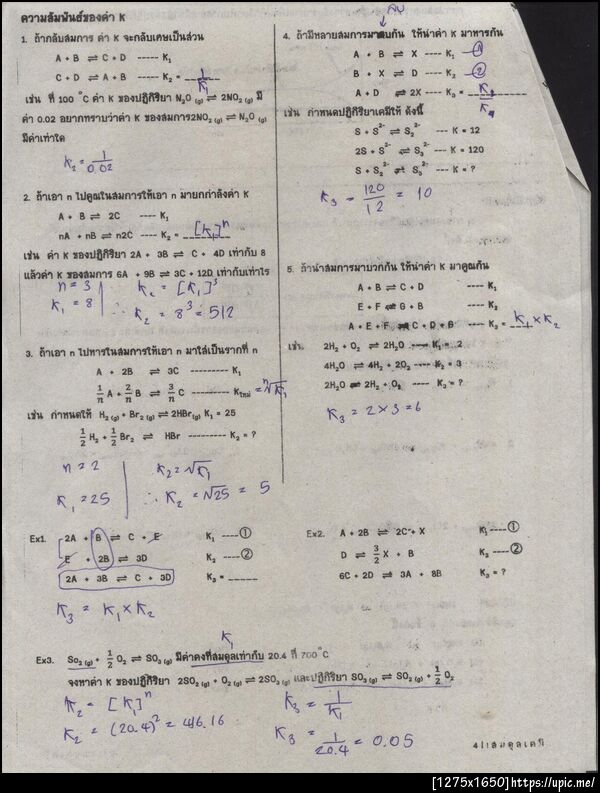 ความสัมพันธ์ของค่า K
1. ถ้ากลับสมการ ค่า K จะกลับเศษเป็นส่วน
A + B ⇌ C + D ----- K₁
C + D ⇌ A + B ----- K₂ = 1/K₁
เช่น ที่ 100 °C ค่า K ของปฏิกิริยา N₂O (g) ⇌ 2NO₂ (g) มี
ค่า 0.02 อยากทราบว่าค่า K ของสมการ2NO₂ (g) ⇌ N₂O (g)
มีค่าเท่าใด
K₂ = 1/0.02
2. ถ้าเอา n ไปคูณในสมการให้เอา n มายกกำลังค่า K
A + B ⇌ 2C ---- K₁
nA + nB ⇌ n2C ---- K₂ = [K₁]ⁿ
เช่น ค่า K ของปฏิกิริยา 2A + 3B ⇌ C + 4D เท่ากับ 8
แล้วค่า K ของสมการ 6A + 9B ⇌ 3C + 12D เท่ากับเท่าไร
n = 3 K₂ = [K₁]³
K₁ = 8 ∴ K₂ = 8³ = 512
3. ถ้าเอา n ไปหารในสมการให้เอา n มาใส่เป็นรากที่ n
A + 2B ⇌ 3C --------- K₁
1/n A + 2/n B ⇌ 3/n C --------- Kใหม่ = ⁿ√K₁
เช่น กำหนดให้ H₂ (g) + Br₂ (g) ⇌ 2HBr(g) K₁ = 25
1/2 H₂ + 1/2 Br₂ ⇌ HBr --------- K₂ = ?
n = 2 K₂ = √K₁
K₁ = 25 ∴ K₂ = √25 = 5
ลบ
4. ถ้ามีหลายสมการมาลบกัน ให้นำค่า K มาหารกัน
A + B ⇌ X ---- K₁ ①
B + X ⇌ D ---- K₂ ②
A + D ⇌ 2X ---- K₃ =
เช่น กำหนดปฏิกิริยาเคมีให้ ดังนี้
S + S²⁻ ⇌ S₂²⁻ --- K = 12
2S + S²⁻ ⇌ S₃²⁻ --- K = 120
S + S₂²⁻ ⇌ S₃²⁻ --- K = ?
K₃ = 120/12 = 10
5. ถ้านำสมการมาบวกกัน ให้นำค่า K มาคูณกัน
A + B ⇌ C + D ---- K₁
E + F ⇌ G + B ---- K₂
A + E + F ⇌ C + D + G ---- K₃ = K₁ × K₂
เช่น 2H₂ + O₂ ⇌ 2H₂O ---- K₁ = 2
4H₂O ⇌ 4H₂ + 2O₂ ---- K₂ = 3
2H₂O ⇌ 2H₂ + O₂ ---- K₃ = ?
K₃ = 2 × 3 = 6
Ex1. 2A + B ⇌ C + E K₁ ----①
E + 2B ⇌ 3D K₂ ----②
2A + 3B ⇌ C + 3D K₃ = ______
K₃ = K₁ × K₂
Ex2. A + 2B ⇌ 2C + X K₁ ----①
D ⇌ 3/2 X + B K₂ ----②
6C + 2D ⇌ 3A + 8B K₃ = ?
K₁
Ex3. So₂ (g) + 1/2 O₂ ⇌ SO₃ (g) มีค่าคงที่สมดุลเท่ากับ 20.4 ที่ 700°C
จงหาค่า K ของปฏิกิริยา 2SO₂ (g) + O₂ (g) ⇌ 2SO₃ (g) และปฏิกิริยา SO₃ (g) ⇌ SO₂ (g) + 1/2 O₂
K₂ = [K₁]ⁿ K₃ = 1/K₁
K₂ = (20.4)² = 416.16 K₃ = 1/20.4 = 0.05
4|สมดุลเคมี
[1275x1650]https://upic.me/